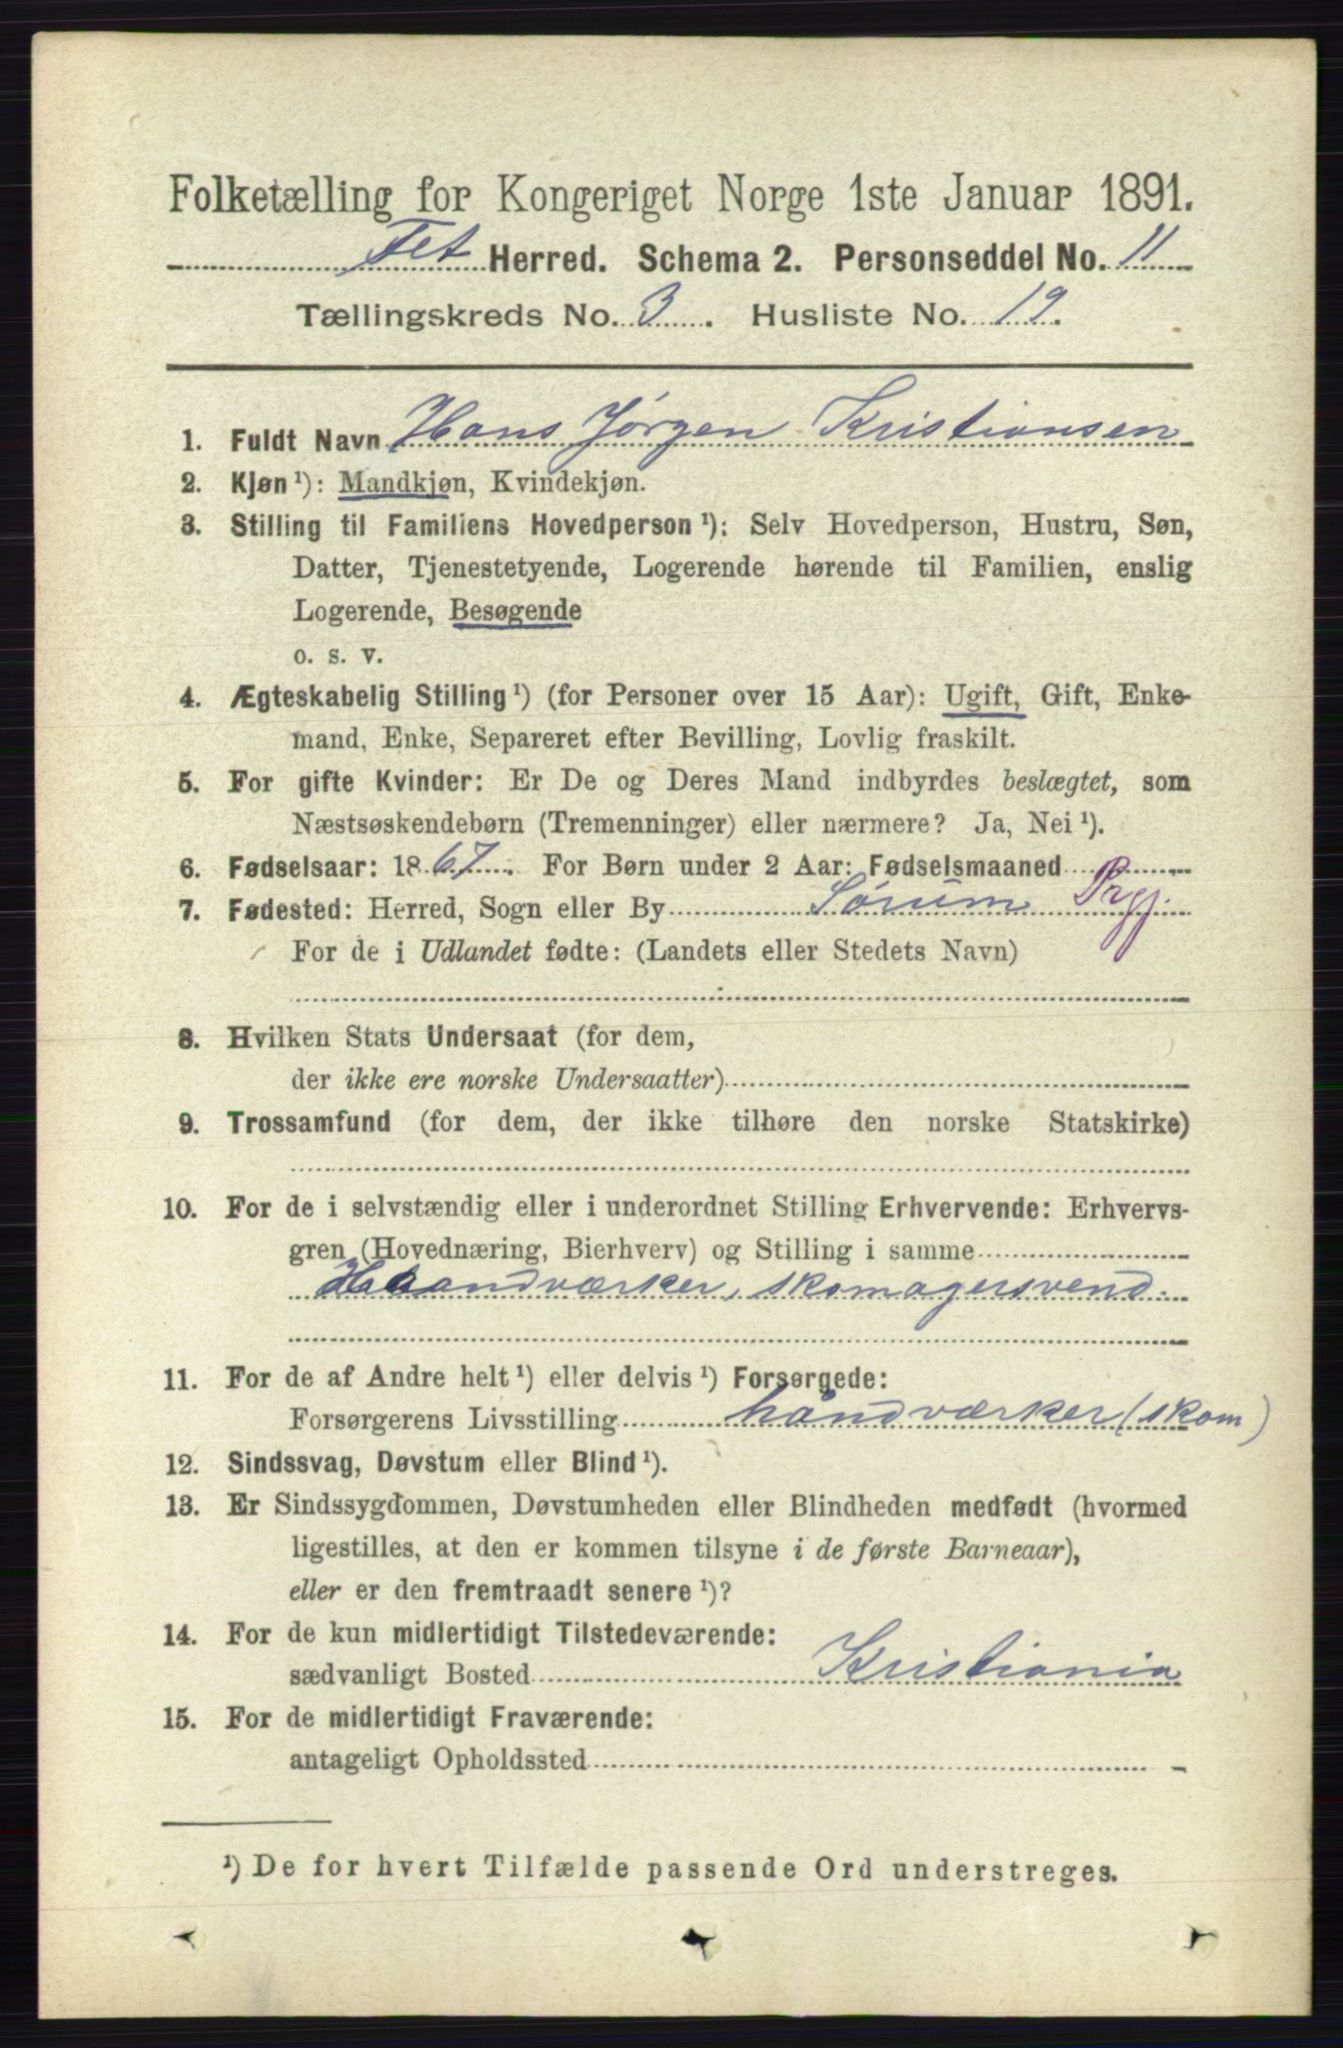 Folketælling for Kongeriget Norge 1ste Januar 1891.
Fet Herred. Schema 2. Personseddel No. 11
Tællingskreds No. 3. Husliste No. 19.
1. Fuldt Navn Hans Jørgen Kristiansen
2. Kjøn ¹): Mandkjøn, Kvindekjøn.
3. Stilling til Familiens Hovedperson ¹): Selv Hovedperson, Hustru, Søn,
Datter, Tjenestetyende, Logerende hørende til Familien, enslig
Logerende, Besøgende
o. s. v.
4. Ægteskabelig Stilling ¹) (for Personer over 15 Aar): Ugift, Gift, Enke-
mand, Enke, Separeret efter Bevilling, Lovlig fraskilt.
5. For gifte Kvinder: Er De og Deres Mand indbyrdes beslægtet, som
Næstsøskendebørn (Tremenninger) eller nærmere? Ja, Nei ¹).
6. Fødselsaar: 1867. For Børn under 2 Aar: Fødselsmaaned
7. Fødested: Herred, Sogn eller By Sørum Prgj.
For de i Udlandet fødte: (Landets eller Stedets Navn)
8. Hvilken Stats Undersaat (for dem,
der ikke ere norske Undersaatter)
9. Trossamfund (for dem, der ikke tilhøre den norske Statskirke)
10. For de i selvstændig eller i underordnet Stilling Erhvervende: Erhvervs-
gren (Hovednæring, Bierhverv) og Stilling i samme
Haandværker, skomagersvend.
11. For de af Andre helt ¹) eller delvis ¹) Forsørgede:
Forsørgerens Livsstilling håndværker (skom)
12. Sindssvag, Døvstum eller Blind ¹).
13. Er Sindssygdommen, Døvstumheden eller Blindheden medfødt (hvormed
ligestilles, at den er kommen tilsyne i de første Barneaar),
eller er den fremtraadt senere ¹)?
14. For de kun midlertidigt Tilstedeværende:
sædvanligt Bosted Kristiania
15. For de midlertidigt Fraværende:
antageligt Opholdssted
¹) De for hvert Tilfælde passende Ord understreges.